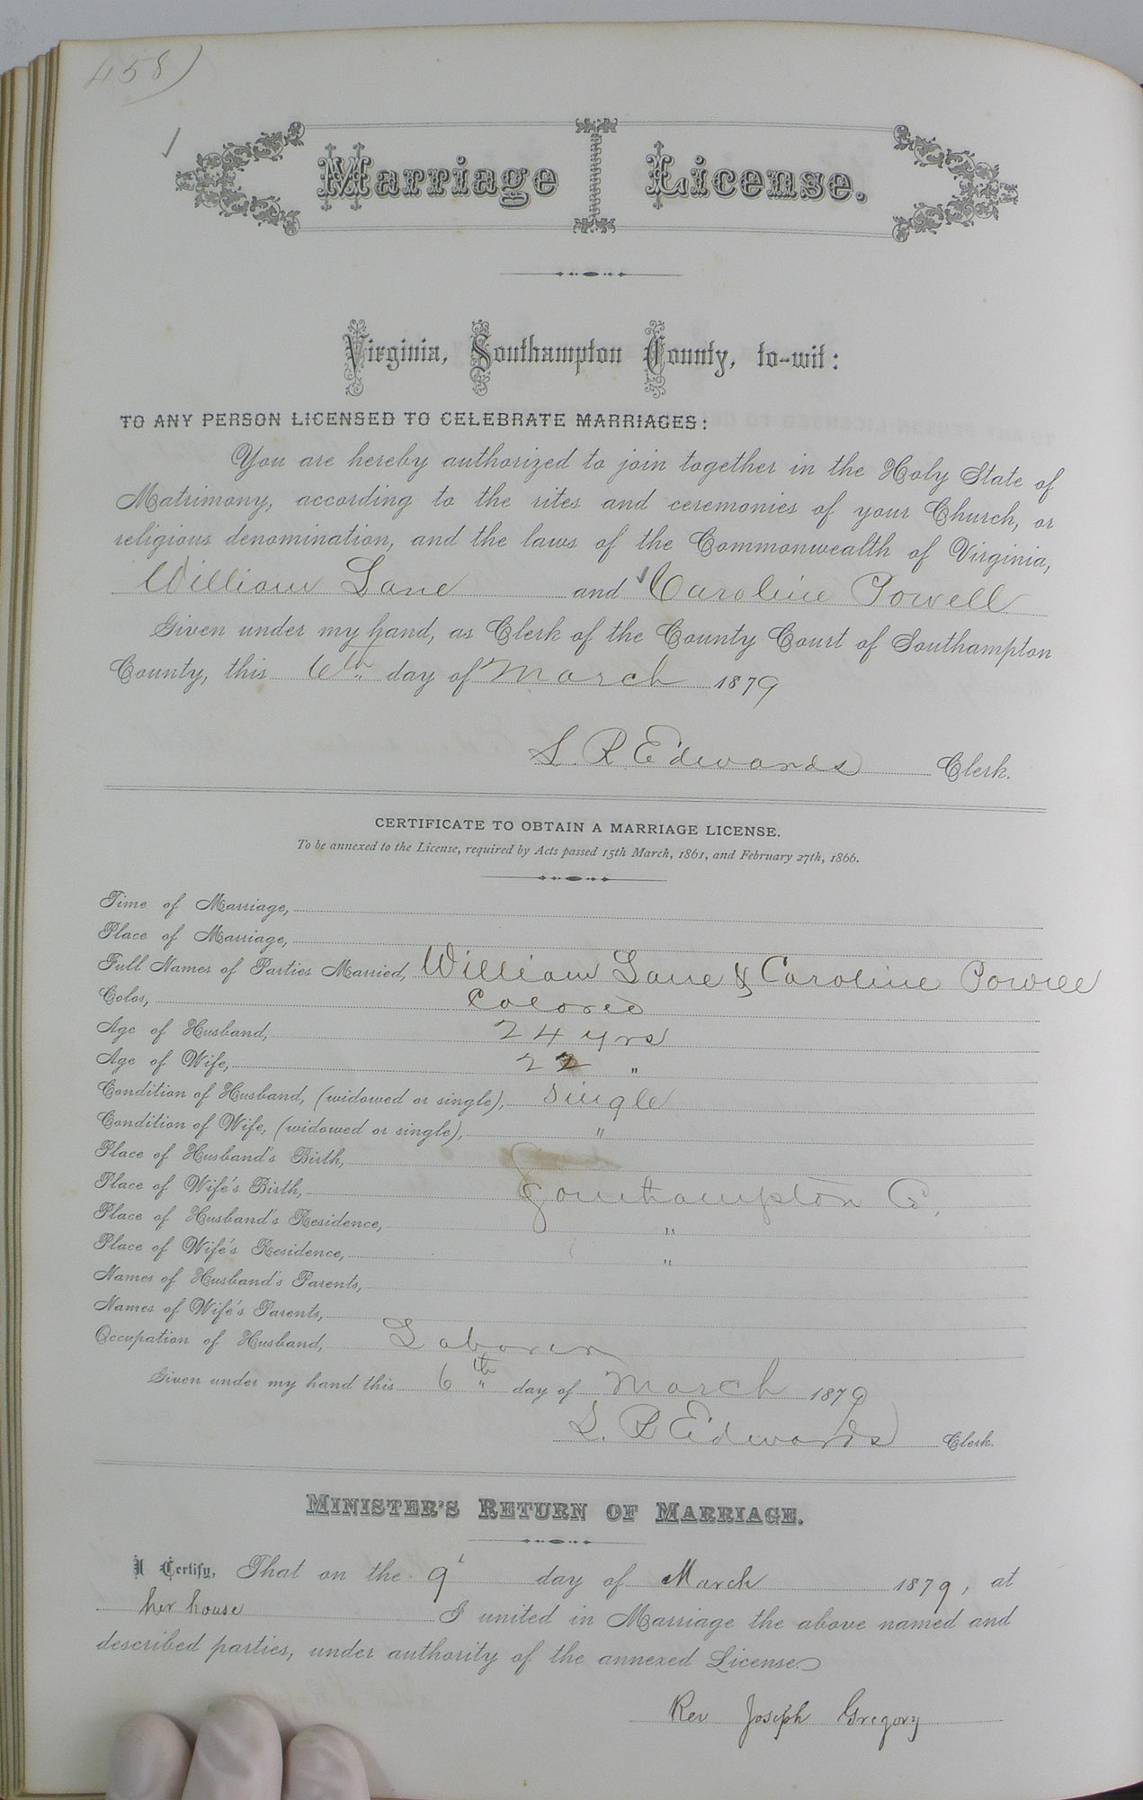 458)
Marriage License.
Virginia, Southampton County, to-wit:
TO ANY PERSON LICENSED TO CELEBRATE MARRIAGES:
You are hereby authorized to join together in the Holy State of
Matrimony, according to the rites and ceremonies of your Church, or
religious denomination, and the laws of the Commonwealth of Virginia,
William Lane and ✓ Caroline Powell
Given under my hand, as Clerk of the County Court of Southampton
County, this 6th day of March 1879
L. R. Edwards Clerk.
CERTIFICATE TO OBTAIN A MARRIAGE LICENSE.
To be annexed to the License, required by Acts passed 15th March, 1861, and February 27th, 1866.
Time of Marriage,
Place of Marriage,
Full Names of Parties Married, William Lane & Caroline Powell
Color, Colored
Age of Husband, 24 yrs
Age of Wife, 22 "
Condition of Husband, (widowed or single), Single
Condition of Wife, (widowed or single), "
Place of Husband's Birth,
Place of Wife's Birth, Southampton Co.
Place of Husband's Residence, "
Place of Wife's Residence, "
Names of Husband's Parents,
Names of Wife's Parents,
Occupation of Husband, Laborer
Given under my hand this 6th day of March 1879
L. R. Edwards Clerk.
MINISTER'S RETURN OF MARRIAGE.
I Certify, That on the 9 day of March 1879, at
her house I united in Marriage the above named and
described parties, under authority of the annexed License.
Rev Joseph Gregory